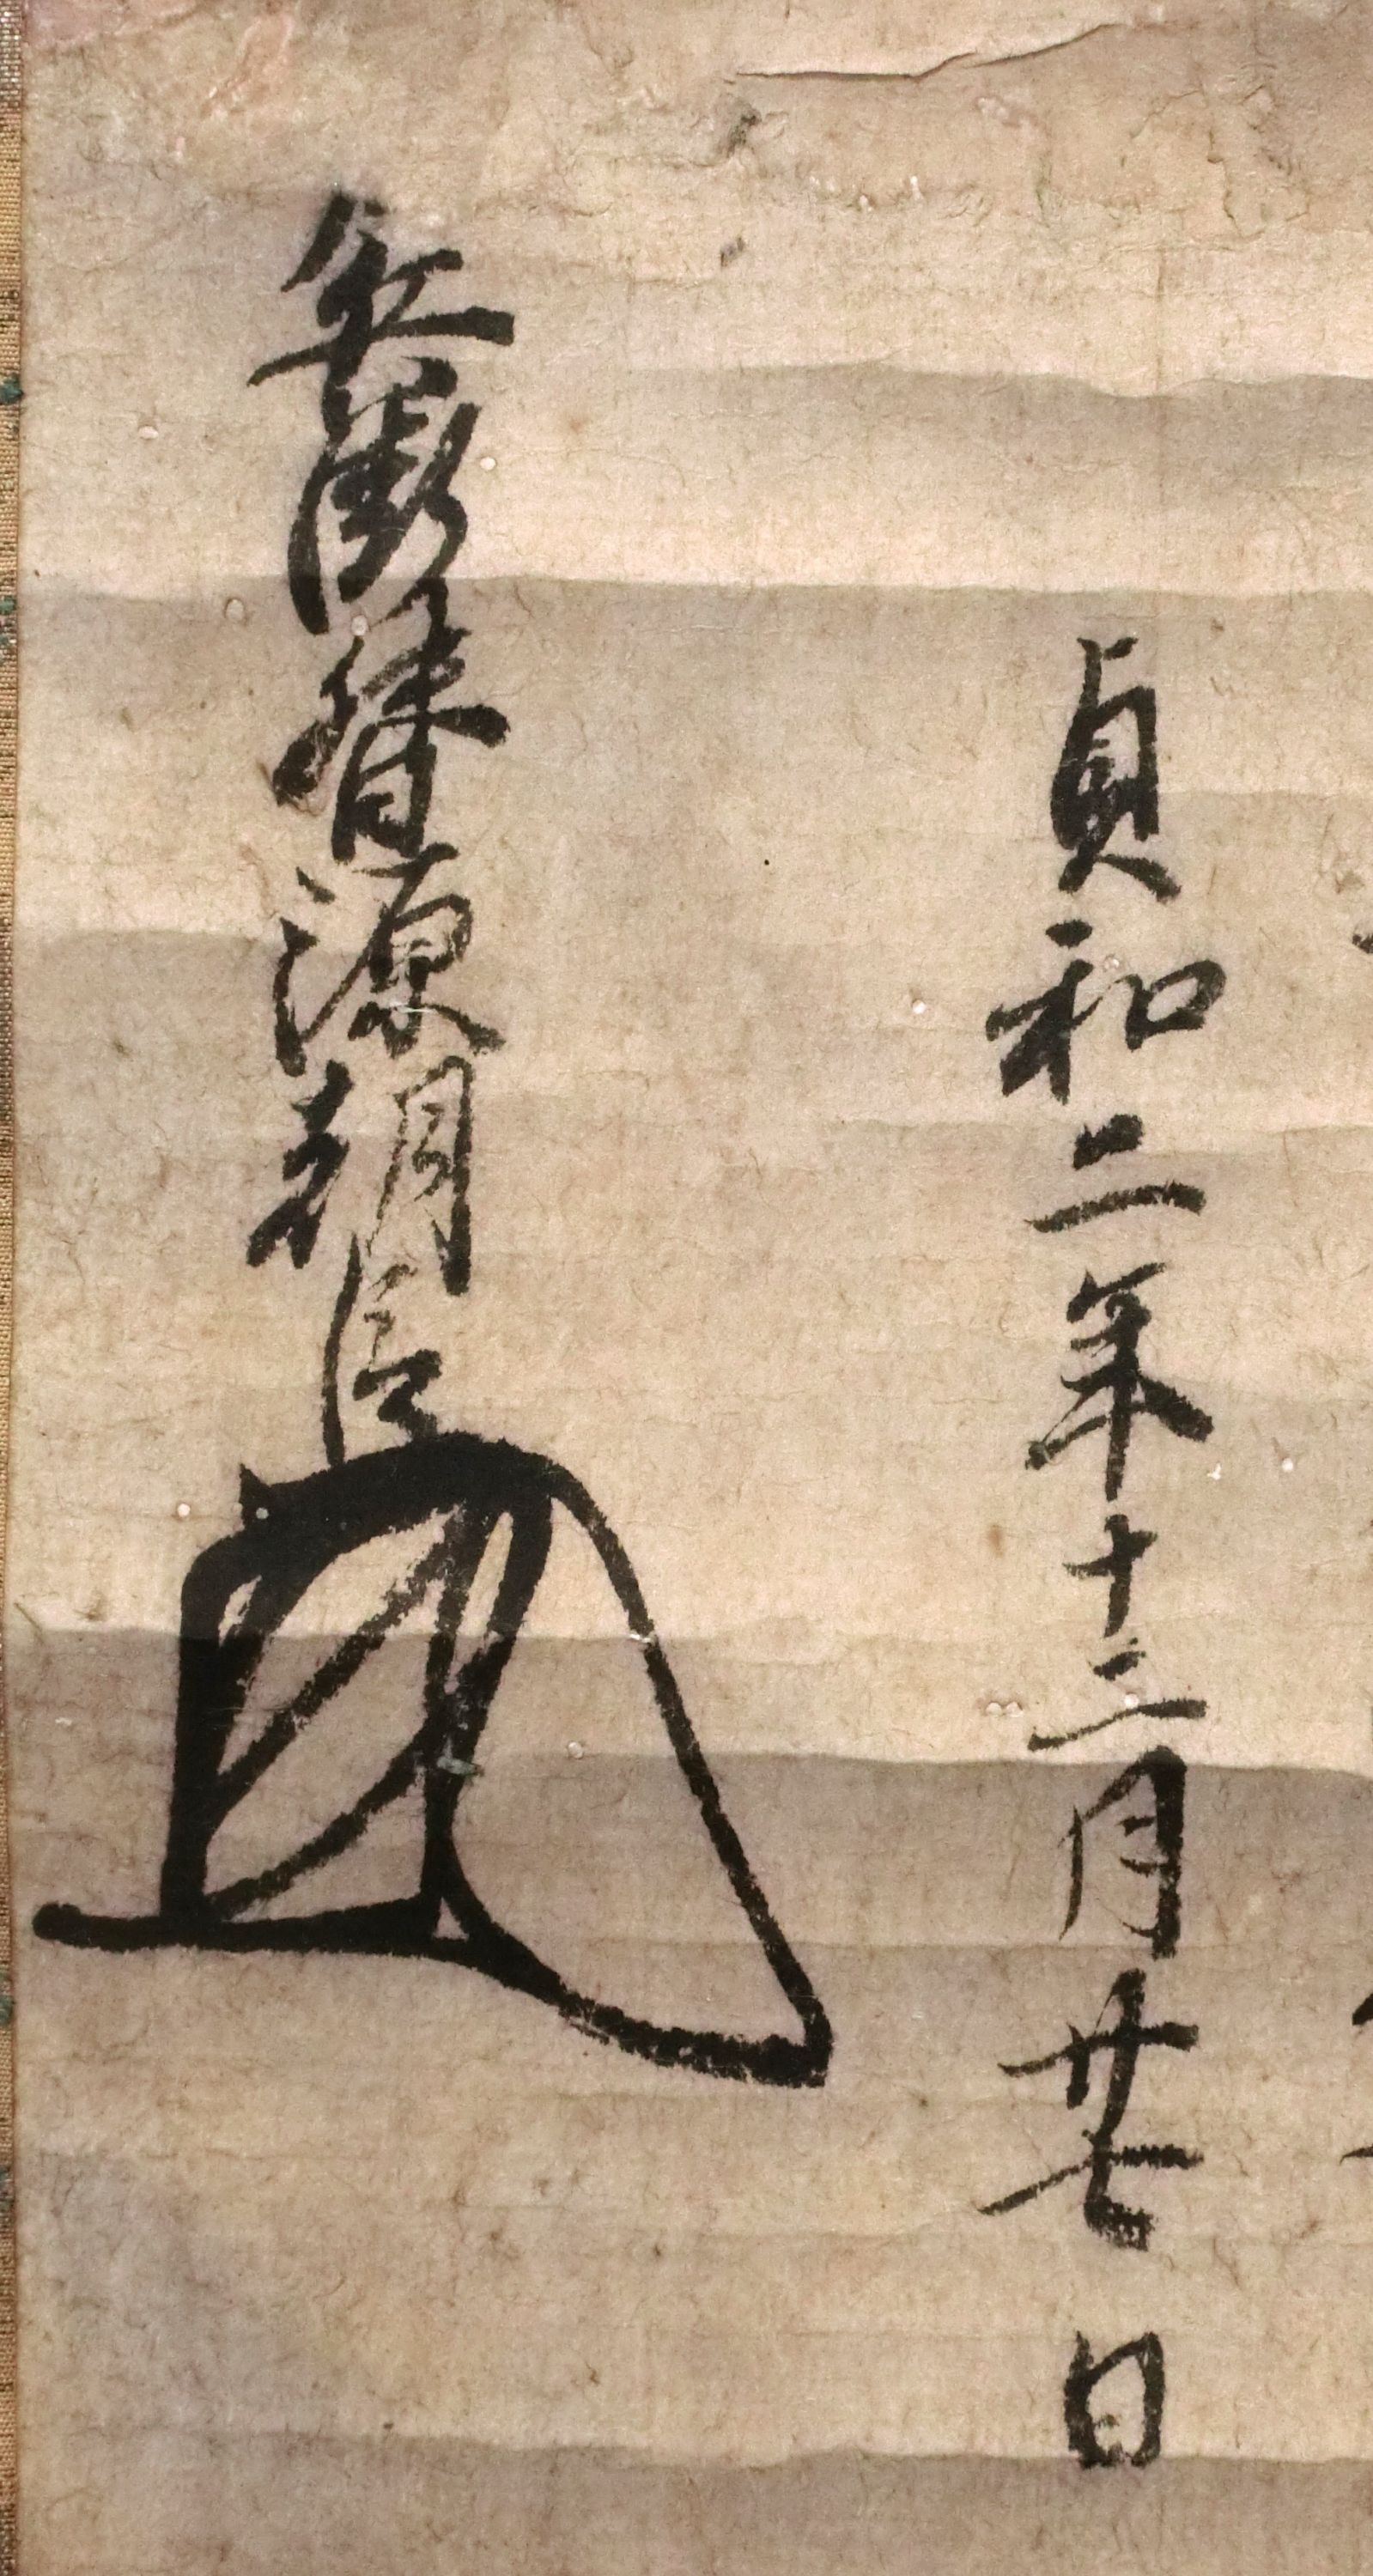 貞和二年十二月廿七日
兵衛督源朝臣